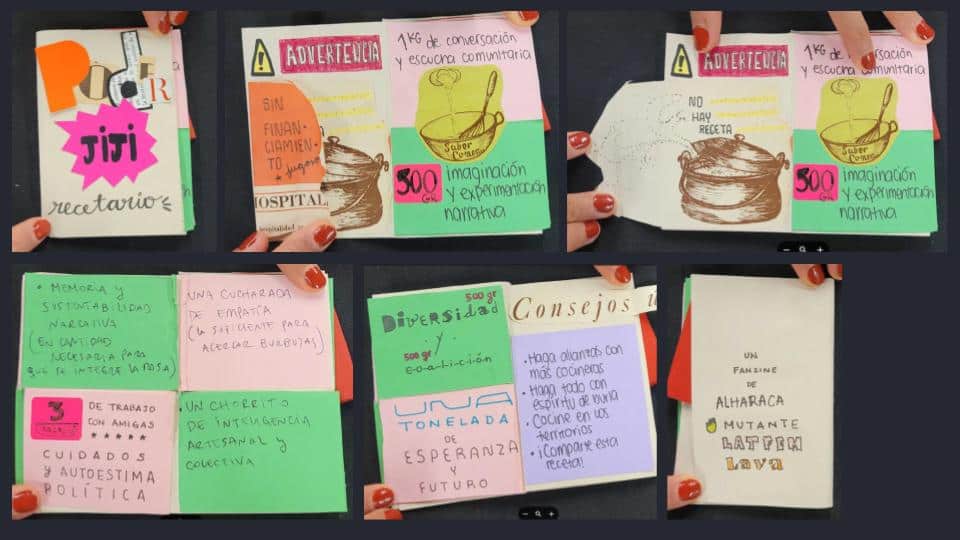 PODER
JIJI
recetario
ADVERTENCIA
SIN
FINAN-
CIAMIEN-
TO
+ jugoso
HOSPITAL
1 KG de conversación
y escucha comunitaria
Saber
500
GR
imaginación
y experimentación
narrativa
ADVERTENCIA
NO
HAY
RECETA
1 KG de conversación
y escucha comunitaria
Saber
500
GR
imaginación
y experimentación
narrativa
• MEMORIA y
SUSTENTABILIDAD
NARRATIVA
(EN CANTIDAD
NECESARIA PARA
QUE SE INTEGRE LA MASA)
UNA CUCHARADA
DE EMPATÍA
(LO SUFICIENTE PARA
ACERCAR BURBUJAS)
3
DE TRABAJO
CON AMIGAS
CUIDADOS
y AUTOESTIMA
POLÍTICA
• UN CHORRITO
DE INTELIGENCIA
ARTESANAL y
COLECTIVA
500 gr
DIVERSIDAD
.y.
500 gr
COALICIÓN
UNA
TONELADA
DE
ESPERANZA
Y
FUTURO
Consejos
• Haga alianzas con
más cocineras
• Haga todo con
espíritu de burla
• Cocine en los
territorios
• ¡Comparte esta
receta!
UN
FANZINE
DE
ALHARACA
MUTANTE
LATFEM
Lava